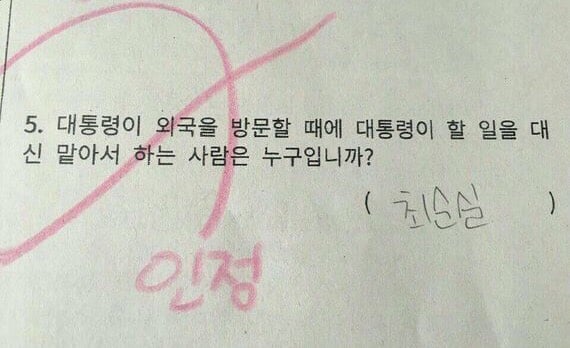 5. 대통령이 외국을 방문할 때에 대통령이 할 일을 대
신 맡아서 하는 사람은 누구입니까?
( 최순실 )
인정